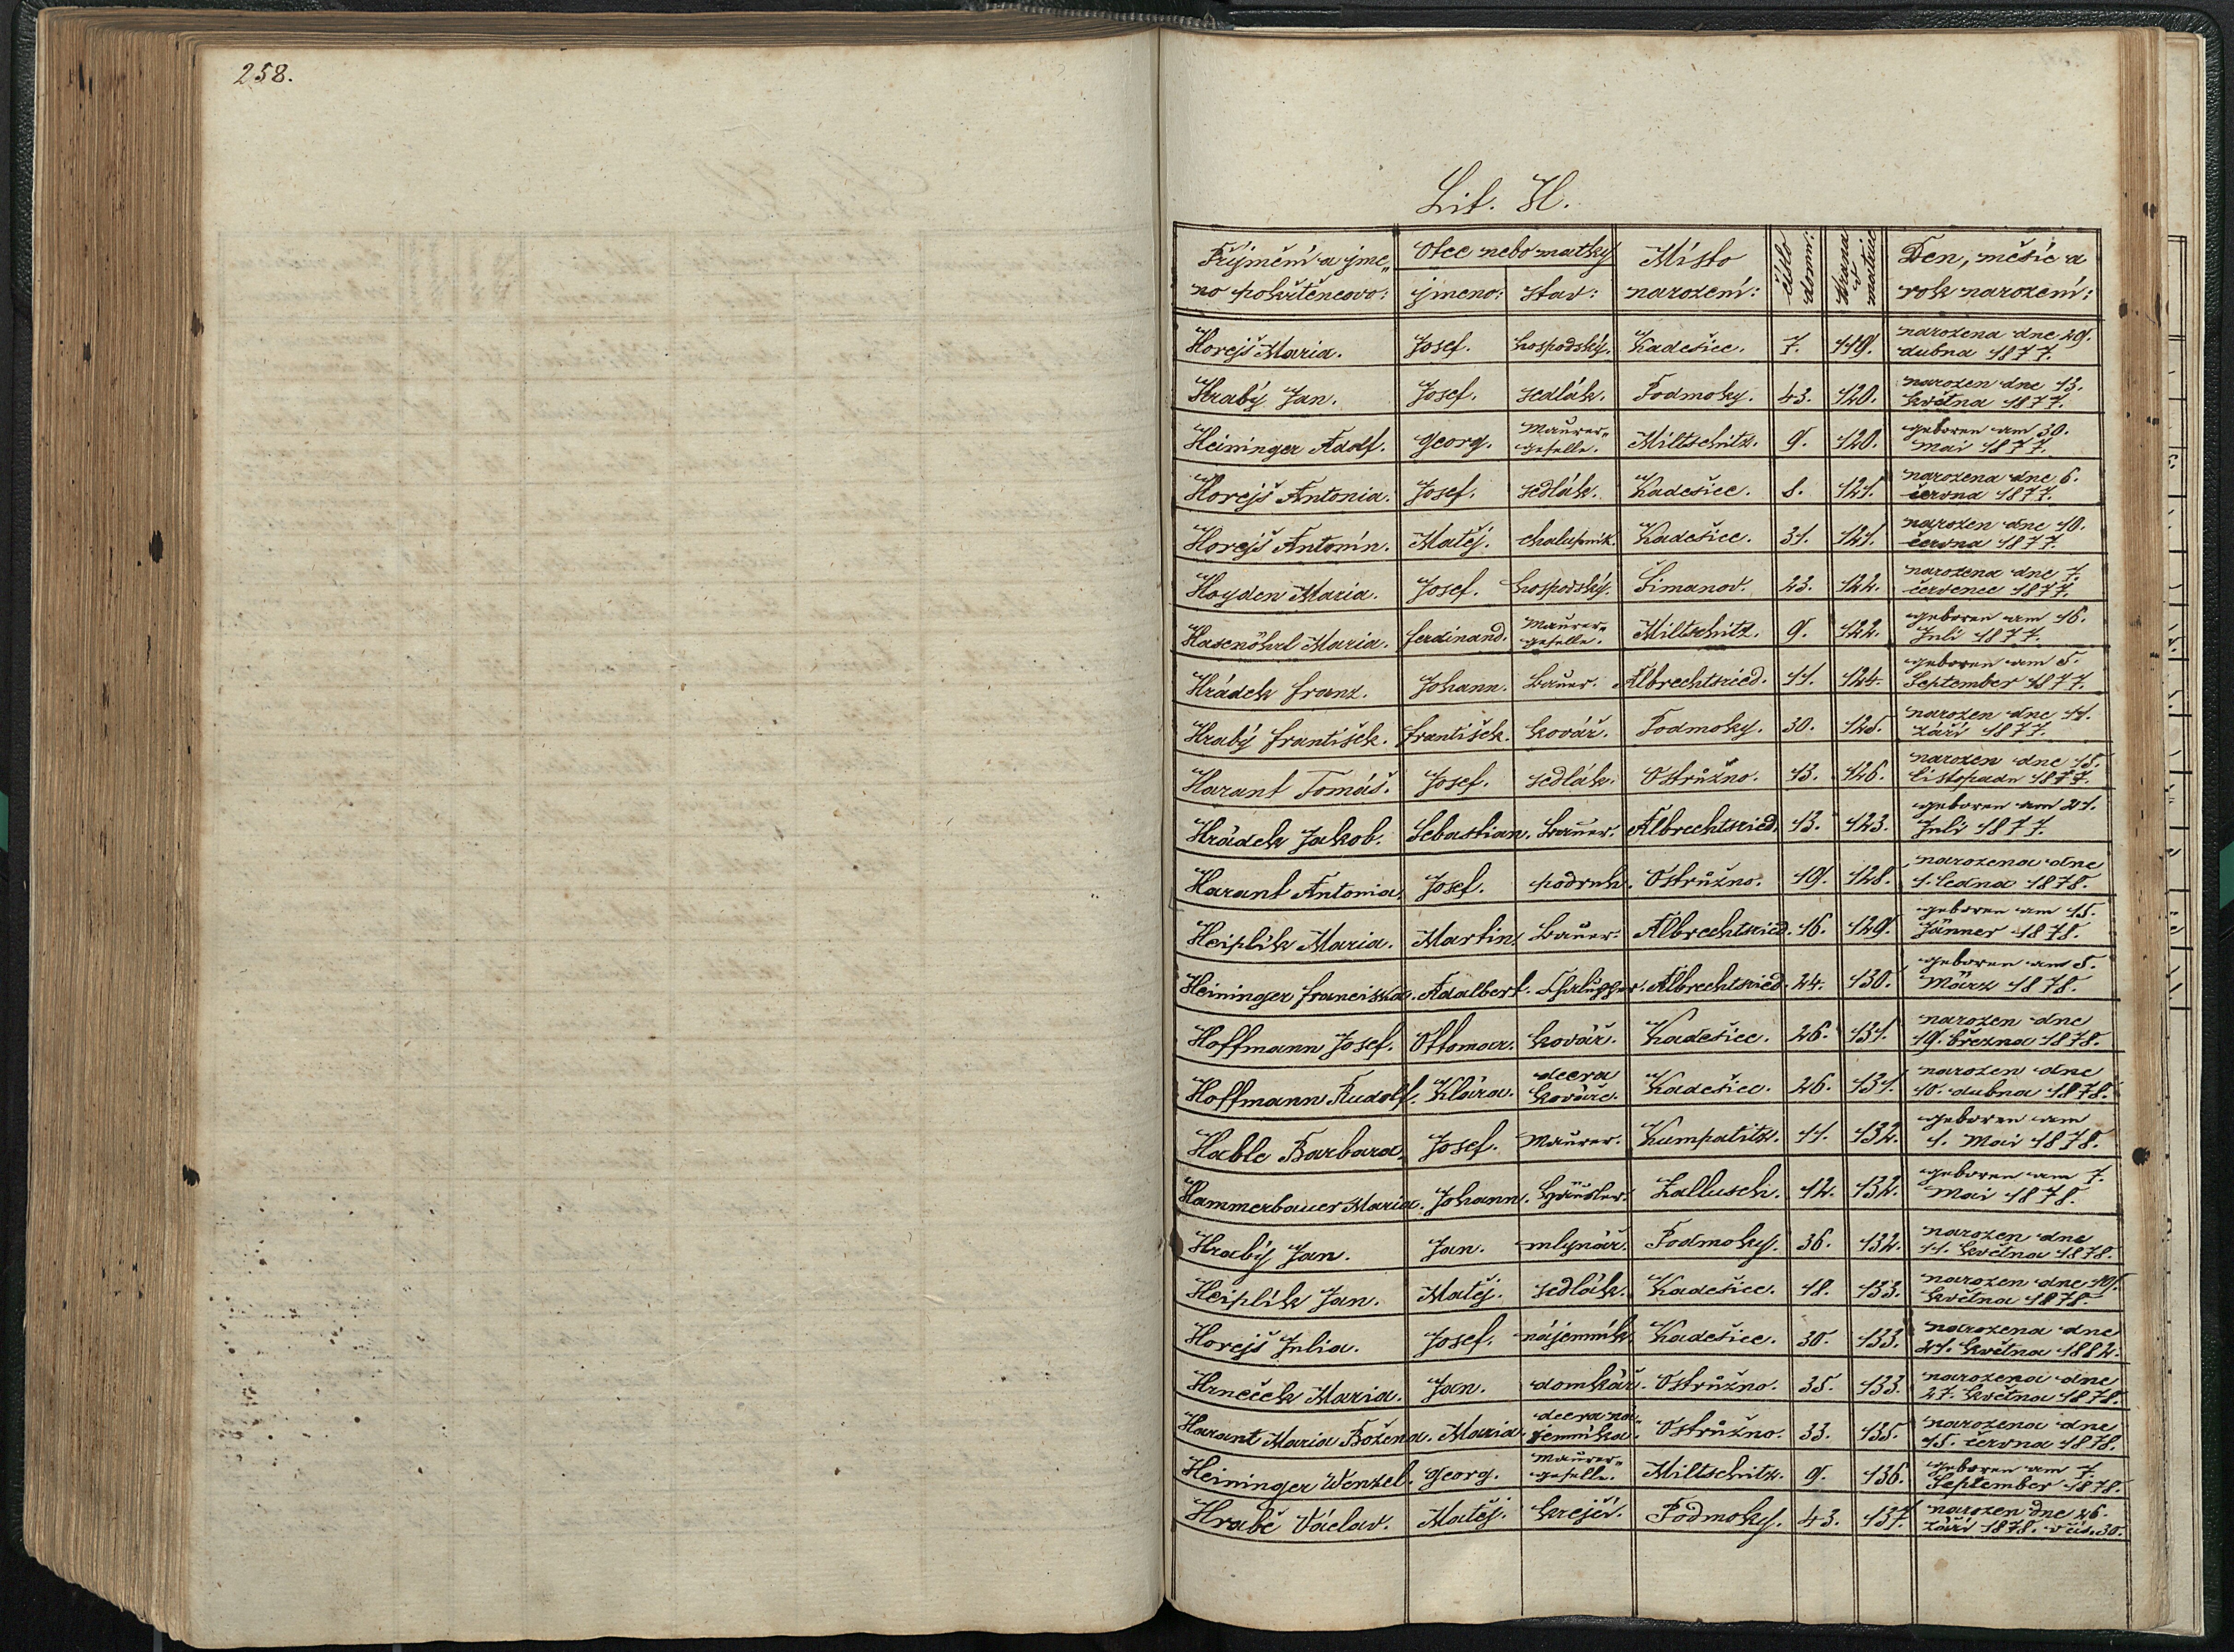 258.
Lit. H.
Příjmění a jme„ Otce nebo matky Místo číslo domu: Strana v matrice Den, měsíc a
no pokřtěncovo: jmeno: stav: narození: rok narození:
Horejš Maria. Josef. hospodský. Kadešice. 7. 119. narozena dne 29. dubna 1877.
Hrabý Jan. Josef. sedlák. Podmoky. 43. 120. narozen dne 13. května 1877.
Heininger Adolf. Georg. Maurer„ geselle. Miltschitz. 9. 120. geboren am 30. Mai 1877.
Horejš Antonia. Josef. sedlák. Kadešice. 8. 121. narozena dne 6. června 1877.
Horejš Antonín. Matěj. chalupník. Kadešice. 31. 121. narozen dne 10. června 1877.
Hoyden Maria. Josef. hospodský. Šimanov. 23. 122. narozena dne 7. července 1877.
Hasenöhrl Maria. Ferdinand. Maurer„ geselle. Miltschitz. 9. 122. geboren am 16. Juli 1877.
Hrádek Franz. Johann. Bauer. Albrechtsried. 11. 124. geboren am 5. September 1877.
Hrabý František. František. kovář. Podmoky. 30. 125. narozen dne 11. září 1877.
Harant Tomáš. Josef. sedlák. Ostružno. 13. 126. narozen dne 15. listopadu 1877.
Hrádek Jakob. Sebastian. Bauer. Albrechtsried. 13. 123. geboren am 21. Juli 1877.
Harant Antonia. Josef. podruh. Ostružno. 19. 128. narozena dne 1. ledna 1878.
Heiplík Maria. Martin. Bauer. Albrechtsried. 16. 129. geboren am 15. Jänner 1878.
Heininger Franciska. Adalbert. Chalupper. Albrechtsried. 24. 130. geboren am 5. März 1878.
Hoffmann Josef. Ottomar. kovář. Kadešice. 26. 131. narozen dne 19. března 1878.
Hoffmann Rudolf. Klára. dcera kováře. Kadešice. 26. 131. narozen dne 10. dubna 1878.
Hable Barbara. Josef. Maurer. Kumpatitz. 11. 132. geboren am 1. Mai 1878.
Hammerbauer Maria. Johann. Häusler. Zallusch. 12. 132. geboren am 7. Mai 1878.
Hrabý Jan. Jan. mlynář. Podmoky. 36. 132. narozen dne 11. května 1878.
Heiplík Jan. Matěj. sedlák. Kadešice. 18. 133. narozen dne 19. května 1878.
Horejš Julia. Josef. nájemník. Kadešice. 30. 133. narozena dne 21. května 1882.
Hrneček Maria. Jan. domkář. Ostružno. 35. 133. narozena dne 27. května 1878.
Harant Maria Božena. Maria. dcera ná„ jemníka. Ostružno. 33. 135. narozena dne 15. června 1878.
Heininger Wenzel. Georg. Maurer„ geselle. Miltschitz. 9. 136. geboren am 7. September 1878.
Hrabě Václav. Matěj. krejčí. Podmoky. 43. 137. narozen dne 26. září 1878. v čís. 30.